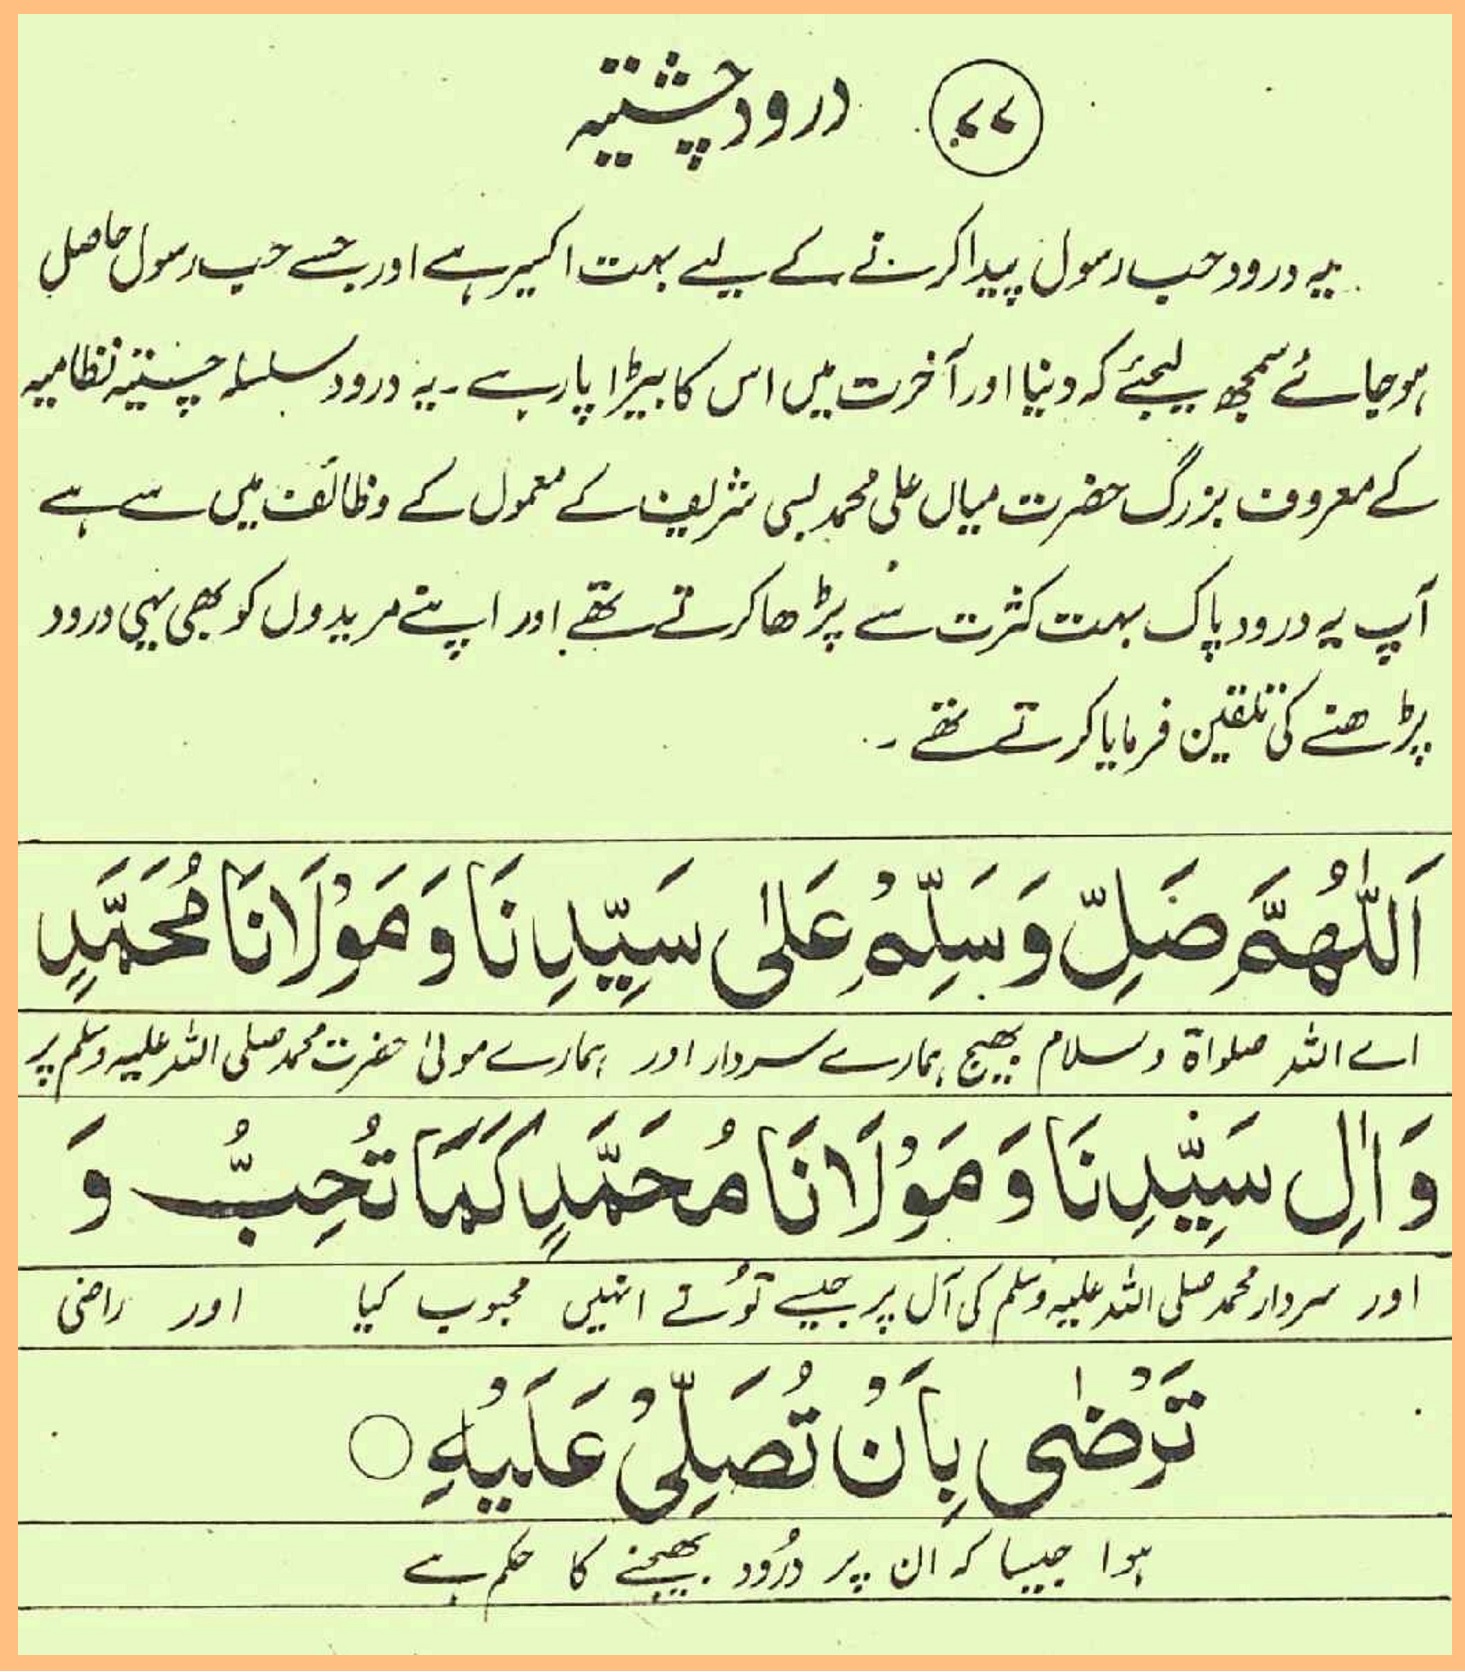 ۷۷ درود چشتیہ
یہ درود حب رسول پیدا کرنے کے لیے بہت اکسیر ہے اور جسے حب رسول حاصل
ہو جائے سمجھ لیجئے کہ دنیا اور آخرت میں اس کا بیڑا پار ہے ۔ یہ درود سلسلہ چشتیہ نظامیہ
کے معروف بزرگ حضرت میاں علی محمد بسی شریف کے معمول کے وظائف میں سے ہے
آپ یہ درود پاک بہت کثرت سے پڑھا کرتے تھے اور اپنے مریدوں کو بھی یہی درود
پڑھنے کی تلقین فرمایا کرتے تھے ۔
اَللّٰهُمَّ صَلِّ وَسَلِّمْ عَلٰى سَيِّدِنَا وَمَوْلَانَا مُحَمَّدٍ
اے اللہ صلواۃ وسلام بھیج ہمارے سردار اور ہمارے مولیٰ حضرت محمد صلی اللہ علیہ وسلم پر
وَاٰلِ سَيِّدِنَا وَمَوْلَانَا مُحَمَّدٍ كَمَا تُحِبُّ وَ
اور سردار محمد صلی اللہ علیہ وسلم کی آل پر جیسے توُ نے انہیں محبوب کیا اور راضی
تَرْضٰى بِاَنْ تُصَلِّيْ عَلَيْهِ ○
ہوا جیسا کہ ان پر درُود بھیجنے کا حکم ہے